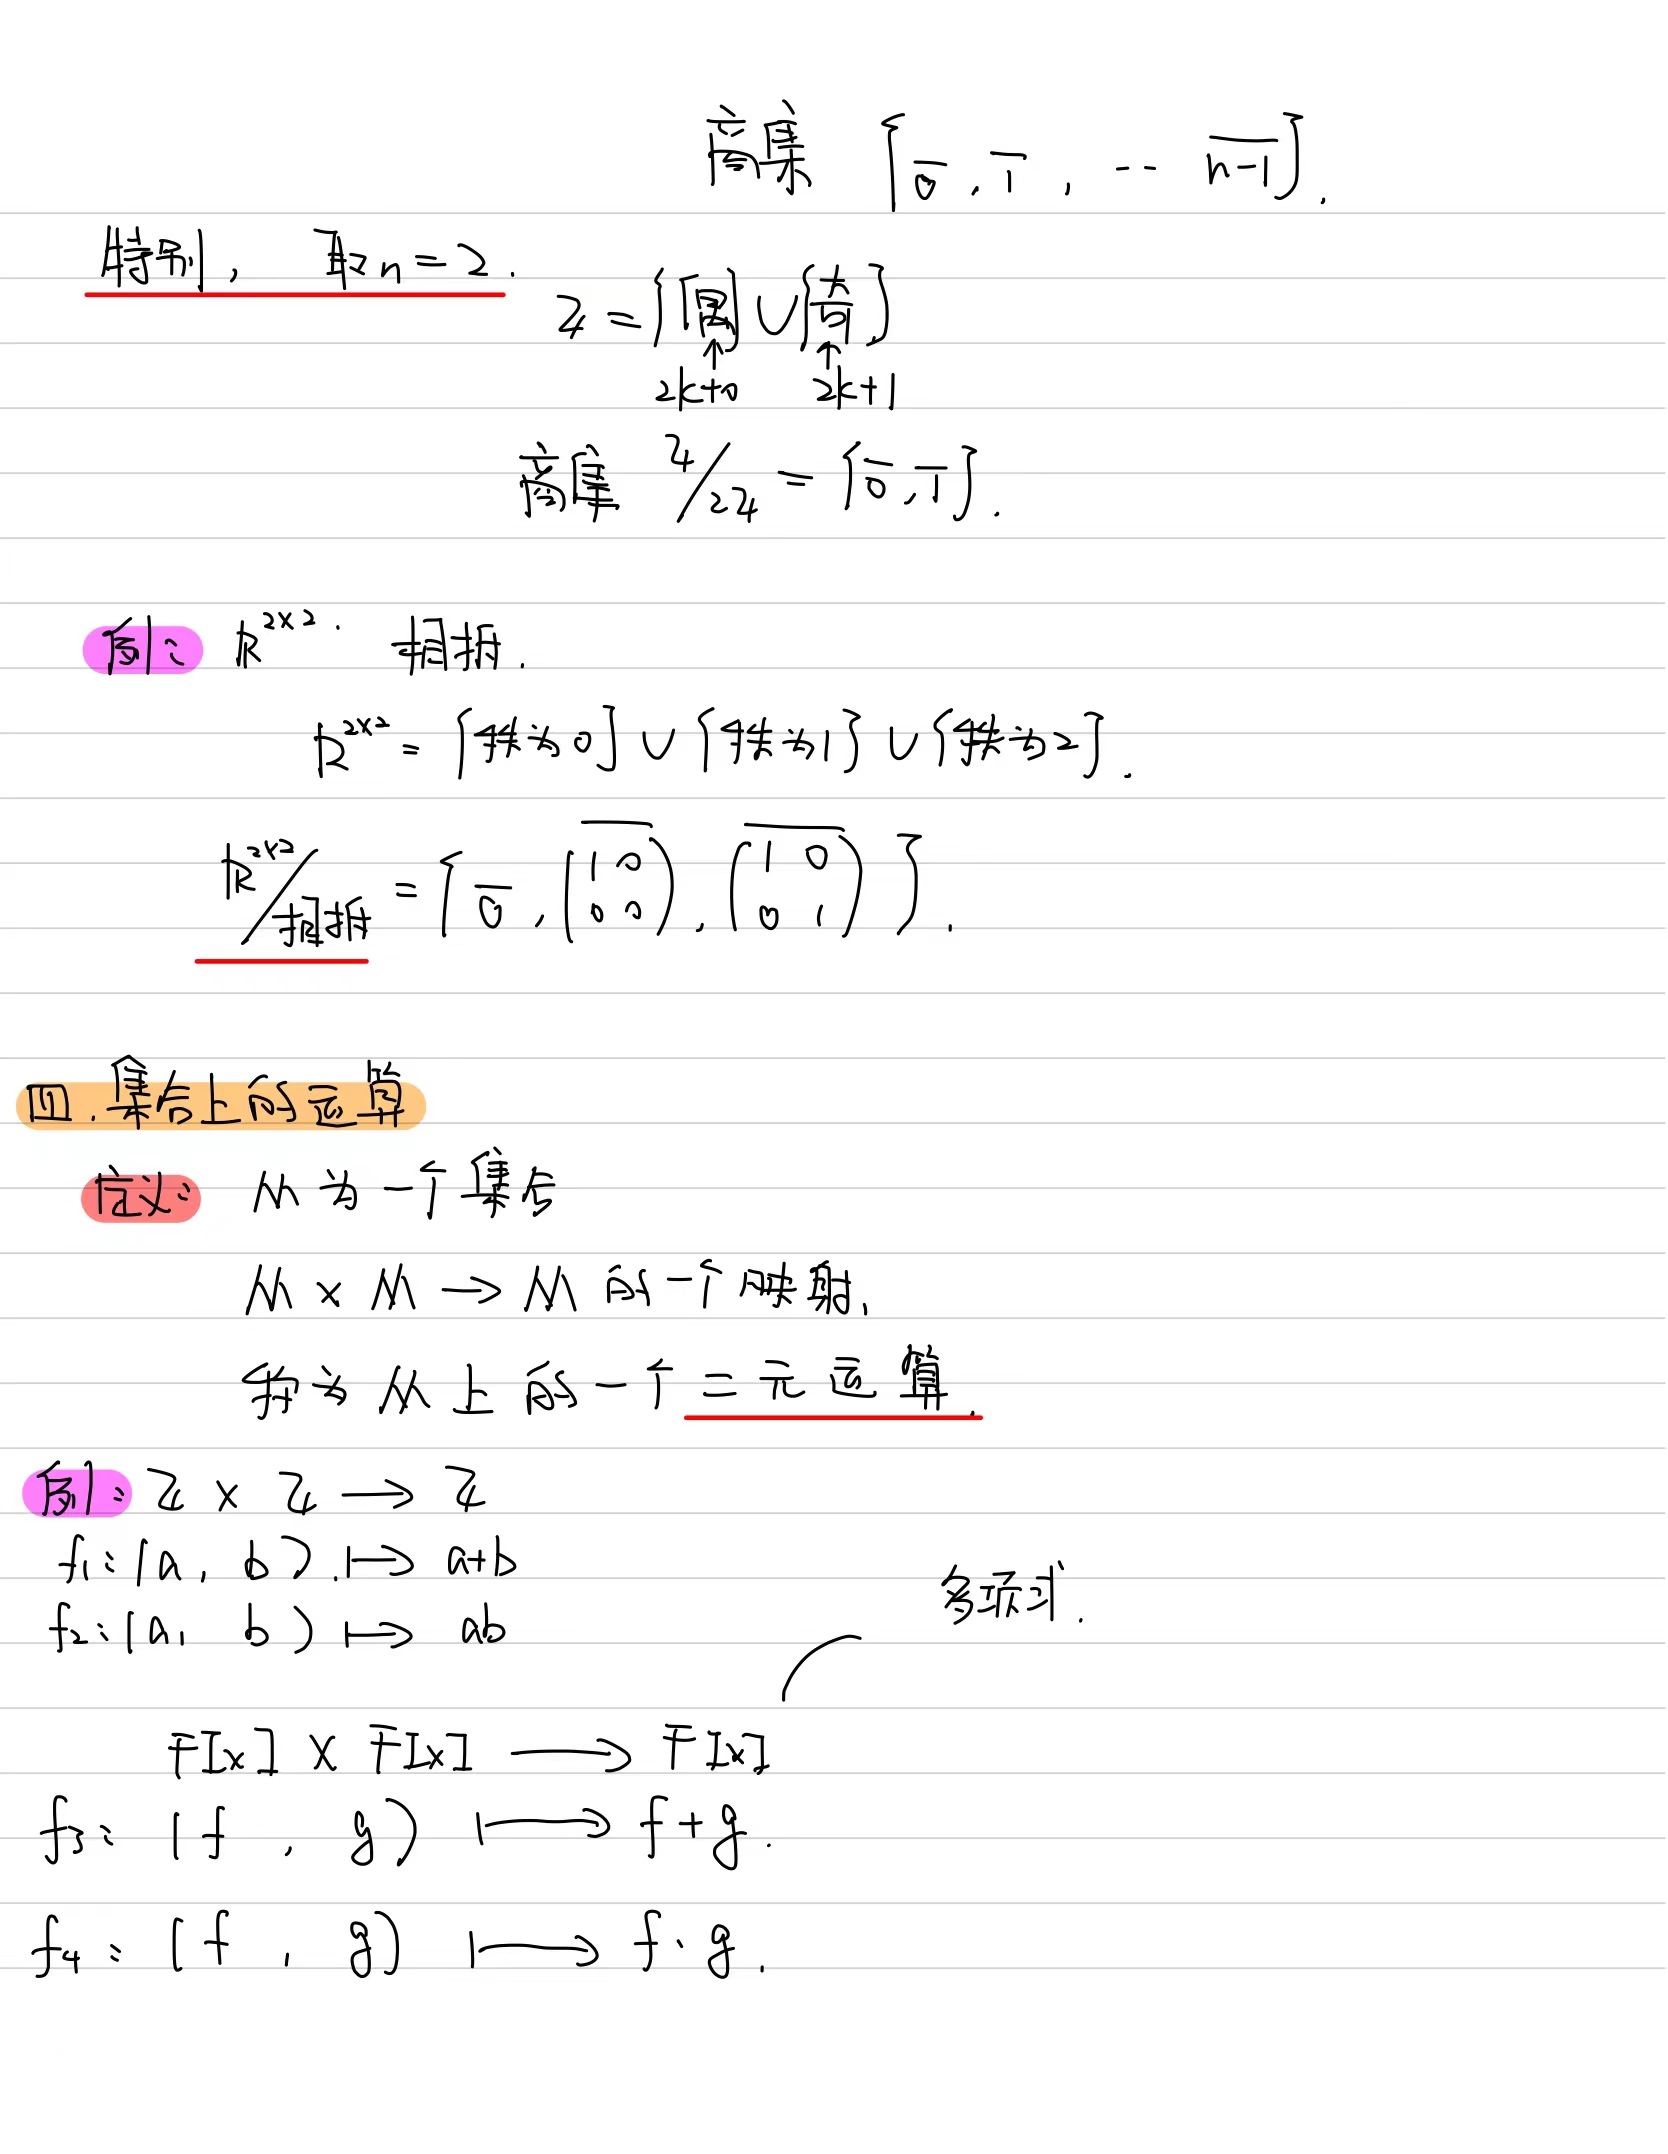 商集 {0̅, 1̅, ·· n-1̅}.
特别, 取n=2.
ℤ={偶}∪{奇}
↑ ↑
2k+0 2k+1
商集 ℤ/2ℤ = {0̅, 1̅}.
例: ℝ^{2×2}. 相抵.
ℝ^{2×2} = {秩为0} ∪ {秩为1} ∪ {秩为2}.
ℝ^{2×2}/相抵 = {0̅, \overline{(1 0; 0 0)}, \overline{(1 0; 0 1)}}.
四.集合上的运算
定义: M为一个集合
M × M → M 的一个映射,
称为 M 上的一个二元运算.
例: ℤ × ℤ → ℤ
f₁: (a, b) ↦ a+b
多项式.
f₂: (a, b) ↦ ab
F[x] × F[x] → F[x]
f₃: (f, g) ↦ f+g.
f₄: (f, g) ↦ f·g.